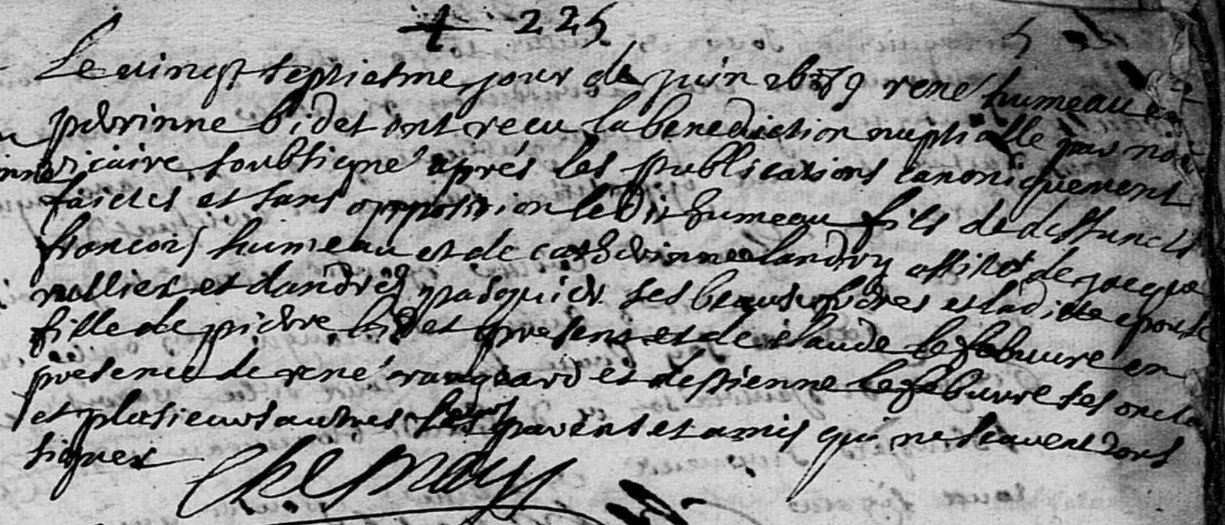 225
Le vingt septiesme jour de juin 1679 rene humeau et
perinne bidet ont receu la benediction nuptialle par nous
vicaire soubsigné aprés les publications canoniquement
faictes et sans opposition ledit humeau fils de deffunct
francois humeau et de catherinne landry assisté de jacque
rullier et dandré pasquier ses beaus freres et laditte epouse
fille de pierre bidet present et de claude lefebuure en
presence de rené rangeard et destienne lefebuure ses oncles
et plusieurs autres leurs parens et amis qui ne scavent
signer